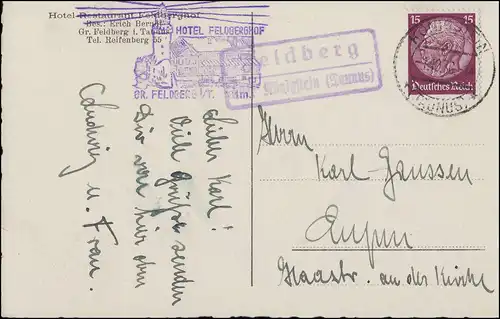 Hotel Restaurant Feldberghof
Bes.: Erich Bern
Gr. Feldberg i. Taunus
Tel. Reifenberg 55
HOTEL FELDBERGHOF
GR. FELDBERG i/T.
Feldberg
Königstein (Taunus)
15 15
Deutsches Reich
(TAUNUS)
Lieber Karl!
Viele Grüße senden
Dir von hier oben
Ludwig u. Frau.
Herrn
Karl Janssen
Eupen
Haastr. an der Kirche